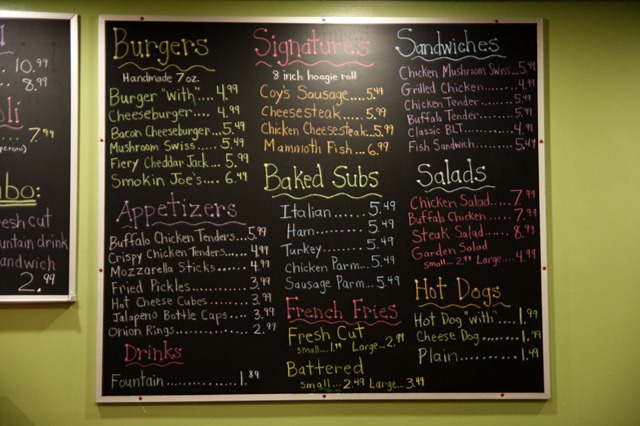 10.99
8.99
7.99
fresh cut
fountain drink
sandwich
2.99
Burgers
Handmade 7 oz.
Burger "with".... 4.99
Cheeseburger.... 4.99
Bacon Cheeseburger... 5.49
Mushroom Swiss..... 5.49
Fiery Cheddar Jack... 5.99
Smokin Joe's.... 6.49
Appetizers
Buffalo Chicken Tenders... 5.99
Crispy Chicken Tenders..... 4.99
Mozzarella Sticks...... 4.99
Fried Pickles....... 3.99
Hot Cheese Cubes..... 3.99
Jalapeno Bottle Caps.... 3.99
Onion Rings............. 2.99
Drinks
Fountain............. 1.89
Signatures
8 inch hoagie roll
Coy's Sausage.... 5.49
Cheesesteak..... 5.49
Chicken Cheesesteak... 5.99
Mammoth Fish.... 6.99
Baked Subs
Italian....... 5.49
Ham......... 5.49
Turkey....... 5.49
Chicken Parm... 5.49
Sausage Parm... 5.49
French Fries
Fresh Cut
small.... 1.99 Large... 2.99
Battered
small... 2.49 Large... 3.99
Sandwiches
Chicken Mushroom Swiss... 5.49
Grilled Chicken....... 4.99
Chicken Tender....... 5.49
Buffalo Tender....... 5.49
Classic BLT.......... 4.99
Fish Sandwich........ 5.49
Salads
Chicken Salad..... 7.99
Buffalo Chicken..... 7.99
Steak Salad....... 8.99
Garden Salad
small... 2.99 Large.... 4.99
Hot Dogs
Hot Dog "with".... 1.99
Cheese Dog........ 1.99
Plain............. 1.49